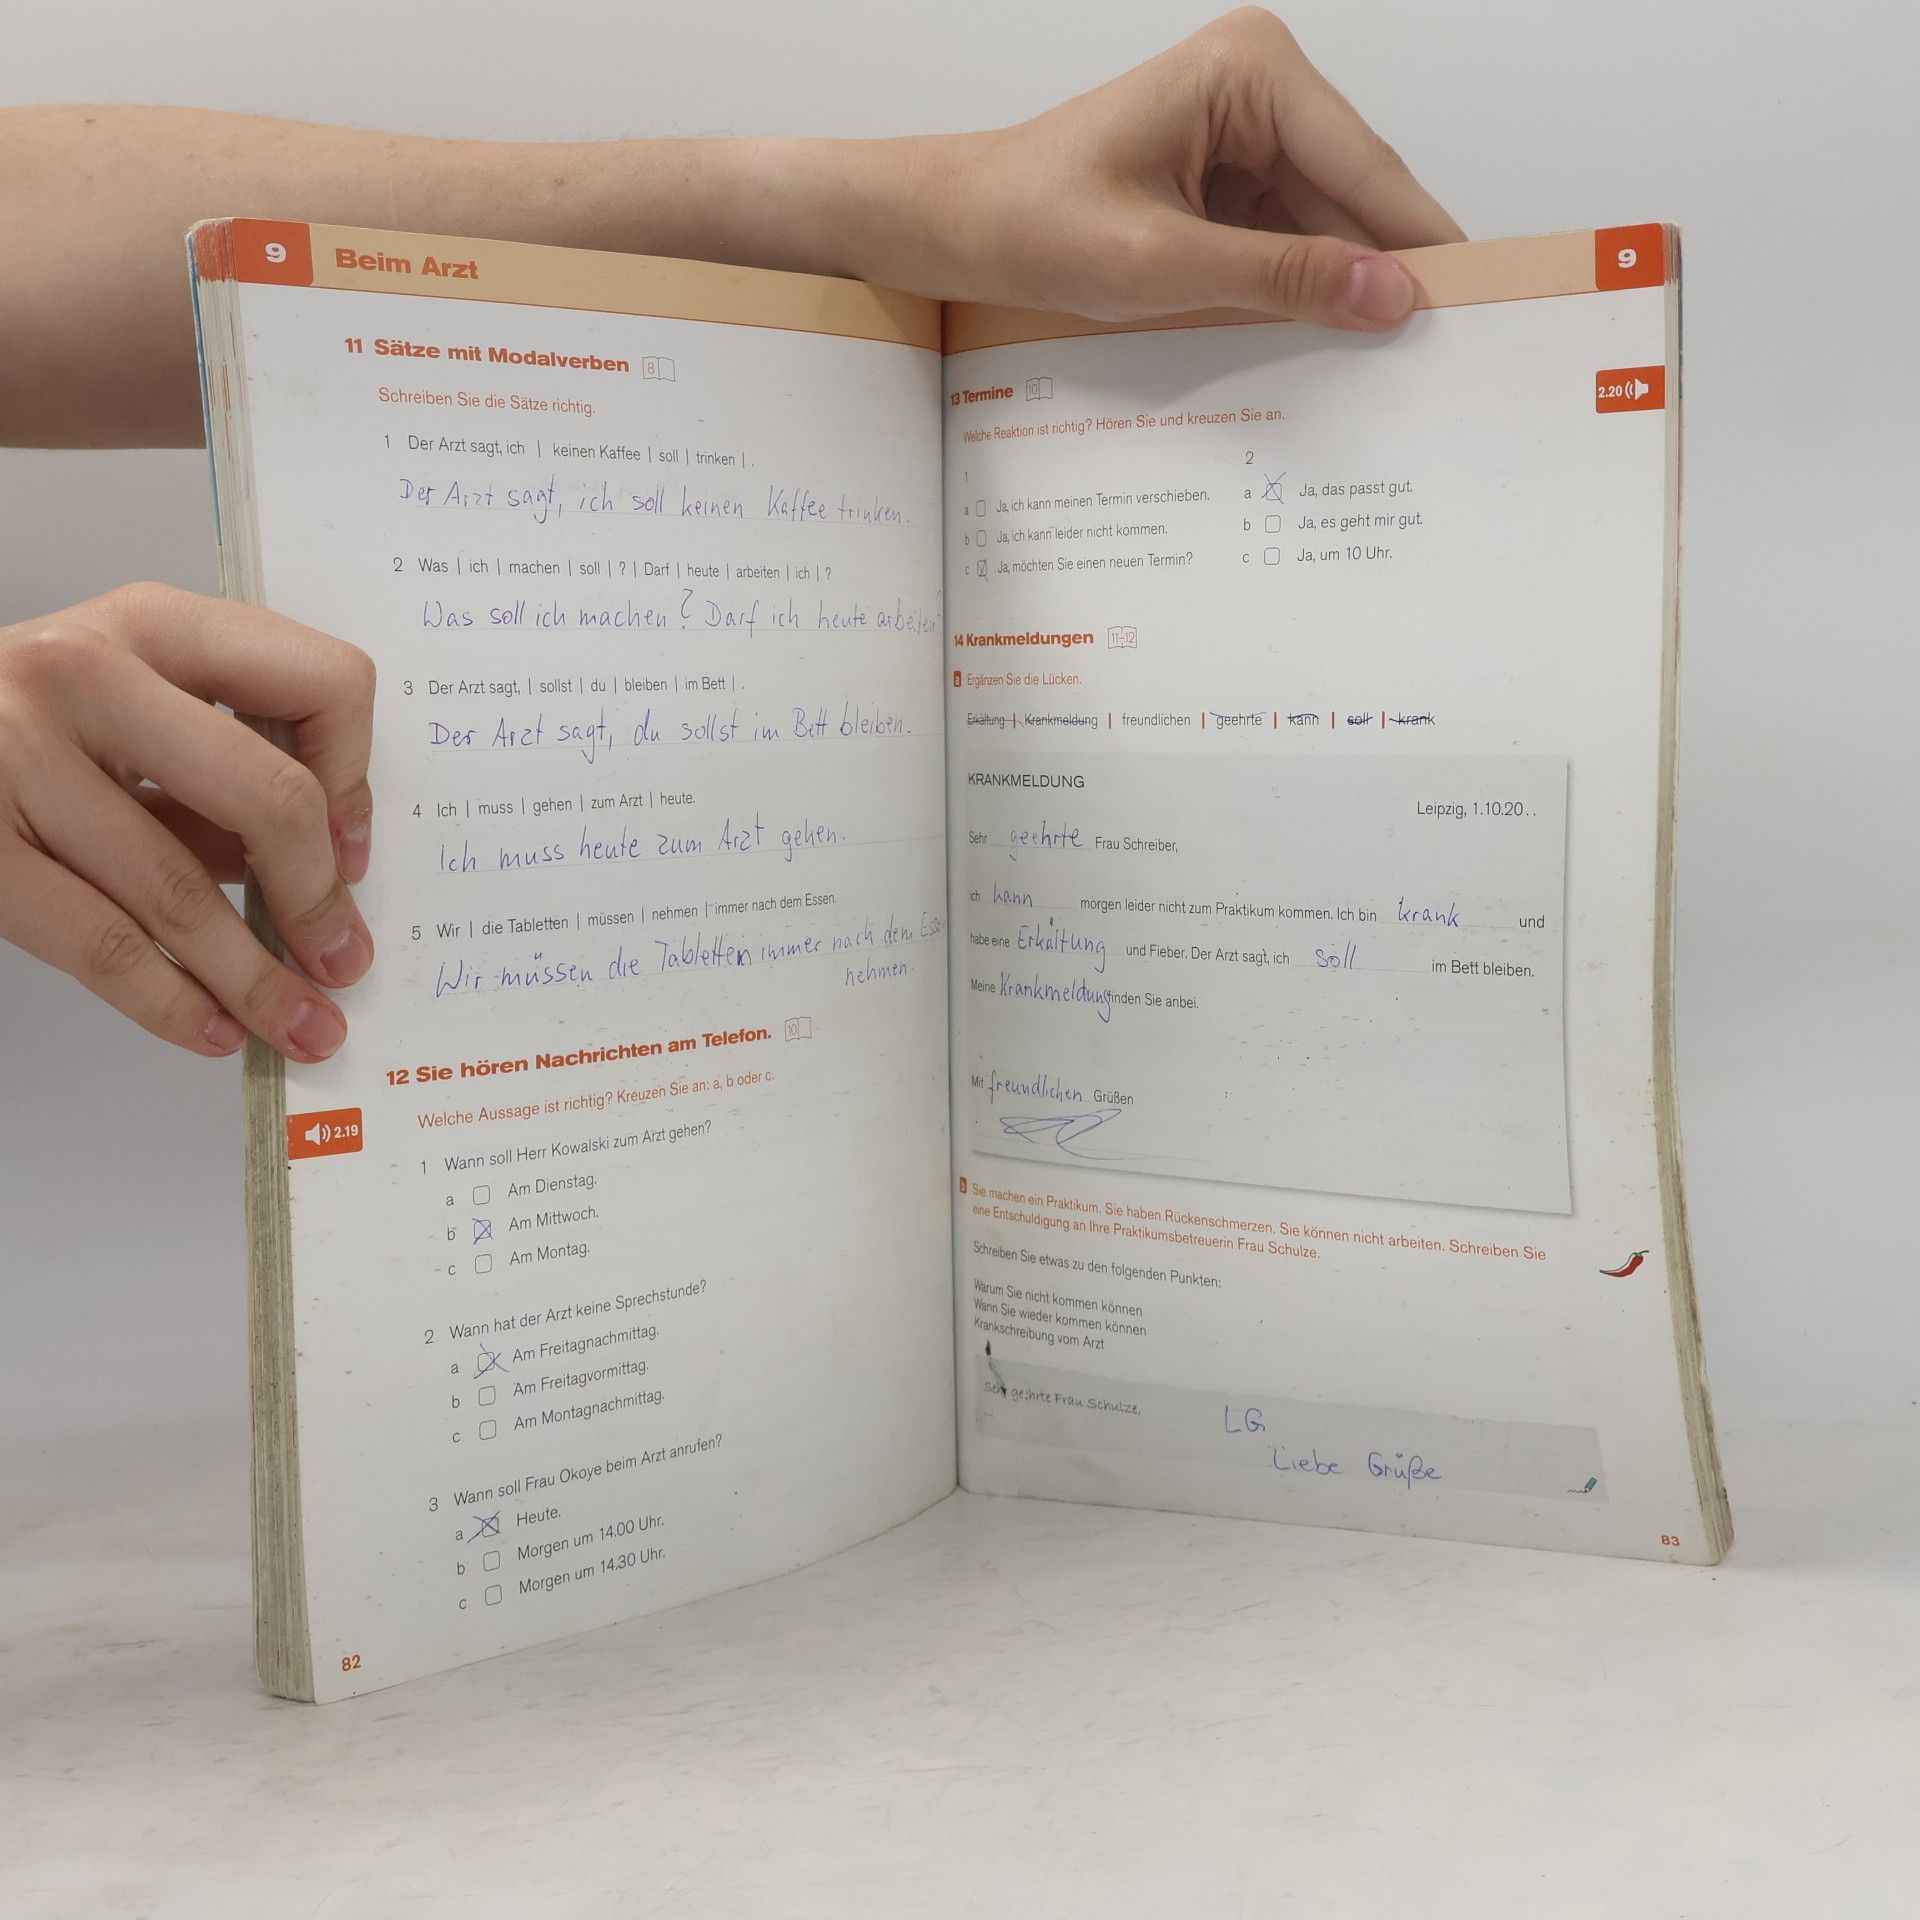 9 Beim Arzt
11 Sätze mit Modalverben 8
Schreiben Sie die Sätze richtig.
1 Der Arzt sagt, ich | keinen Kaffee | soll | trinken | .
Der Arzt sagt, ich soll keinen Kaffee trinken.
2 Was | ich | machen | soll | ? | Darf | heute | arbeiten | ich | ?
Was soll ich machen? Darf ich heute arbeiten?
3 Der Arzt sagt, | sollst | du | bleiben | im Bett | .
Der Arzt sagt, du sollst im Bett bleiben.
4 Ich | muss | gehen | zum Arzt | heute.
Ich muss heute zum Arzt gehen.
5 Wir | die Tabletten | müssen | nehmen | immer nach dem Essen.
Wir müssen die Tabletten immer nach dem Essen
nehmen.
12 Sie hören Nachrichten am Telefon. 10
Welche Aussage ist richtig? Kreuzen Sie an: a, b oder c.
2.19
1 Wann soll Herr Kowalski zum Arzt gehen?
a Am Dienstag.
b Am Mittwoch.
c Am Montag.
2 Wann hat der Arzt keine Sprechstunde?
a Am Freitagnachmittag.
b Am Freitagvormittag.
c Am Montagnachmittag.
3 Wann soll Frau Okoye beim Arzt anrufen?
a Heute.
b Morgen um 14.00 Uhr.
c Morgen um 14.30 Uhr.
82
9
13 Termine 10
2.20
Welche Reaktion ist richtig? Hören Sie und kreuzen Sie an.
1
a Ja, ich kann meinen Termin verschieben.
b Ja, ich kann leider nicht kommen.
c Ja, möchten Sie einen neuen Termin?
2
a Ja, das passt gut.
b Ja, es geht mir gut.
c Ja, um 10 Uhr.
14 Krankmeldungen 11-12
a Ergänzen Sie die Lücken.
Erkältung | Krankmeldung | freundlichen | geehrte | kann | soll | krank
KRANKMELDUNG
Leipzig, 1.10.20..
Sehr geehrte Frau Schreiber,
ich kann morgen leider nicht zum Praktikum kommen. Ich bin krank und
habe eine Erkältung und Fieber. Der Arzt sagt, ich soll im Bett bleiben.
Meine Krankmeldung finden Sie anbei.
Mit freundlichen Grüßen
b Sie machen ein Praktikum. Sie haben Rückenschmerzen. Sie können nicht arbeiten. Schreiben Sie
eine Entschuldigung an Ihre Praktikumsbetreuerin Frau Schulze.
Schreiben Sie etwas zu den folgenden Punkten:
Warum Sie nicht kommen können
Wann Sie wieder kommen können
Krankschreibung vom Arzt
Sehr geehrte Frau Schulze,
...
LG
Liebe Grüße
83